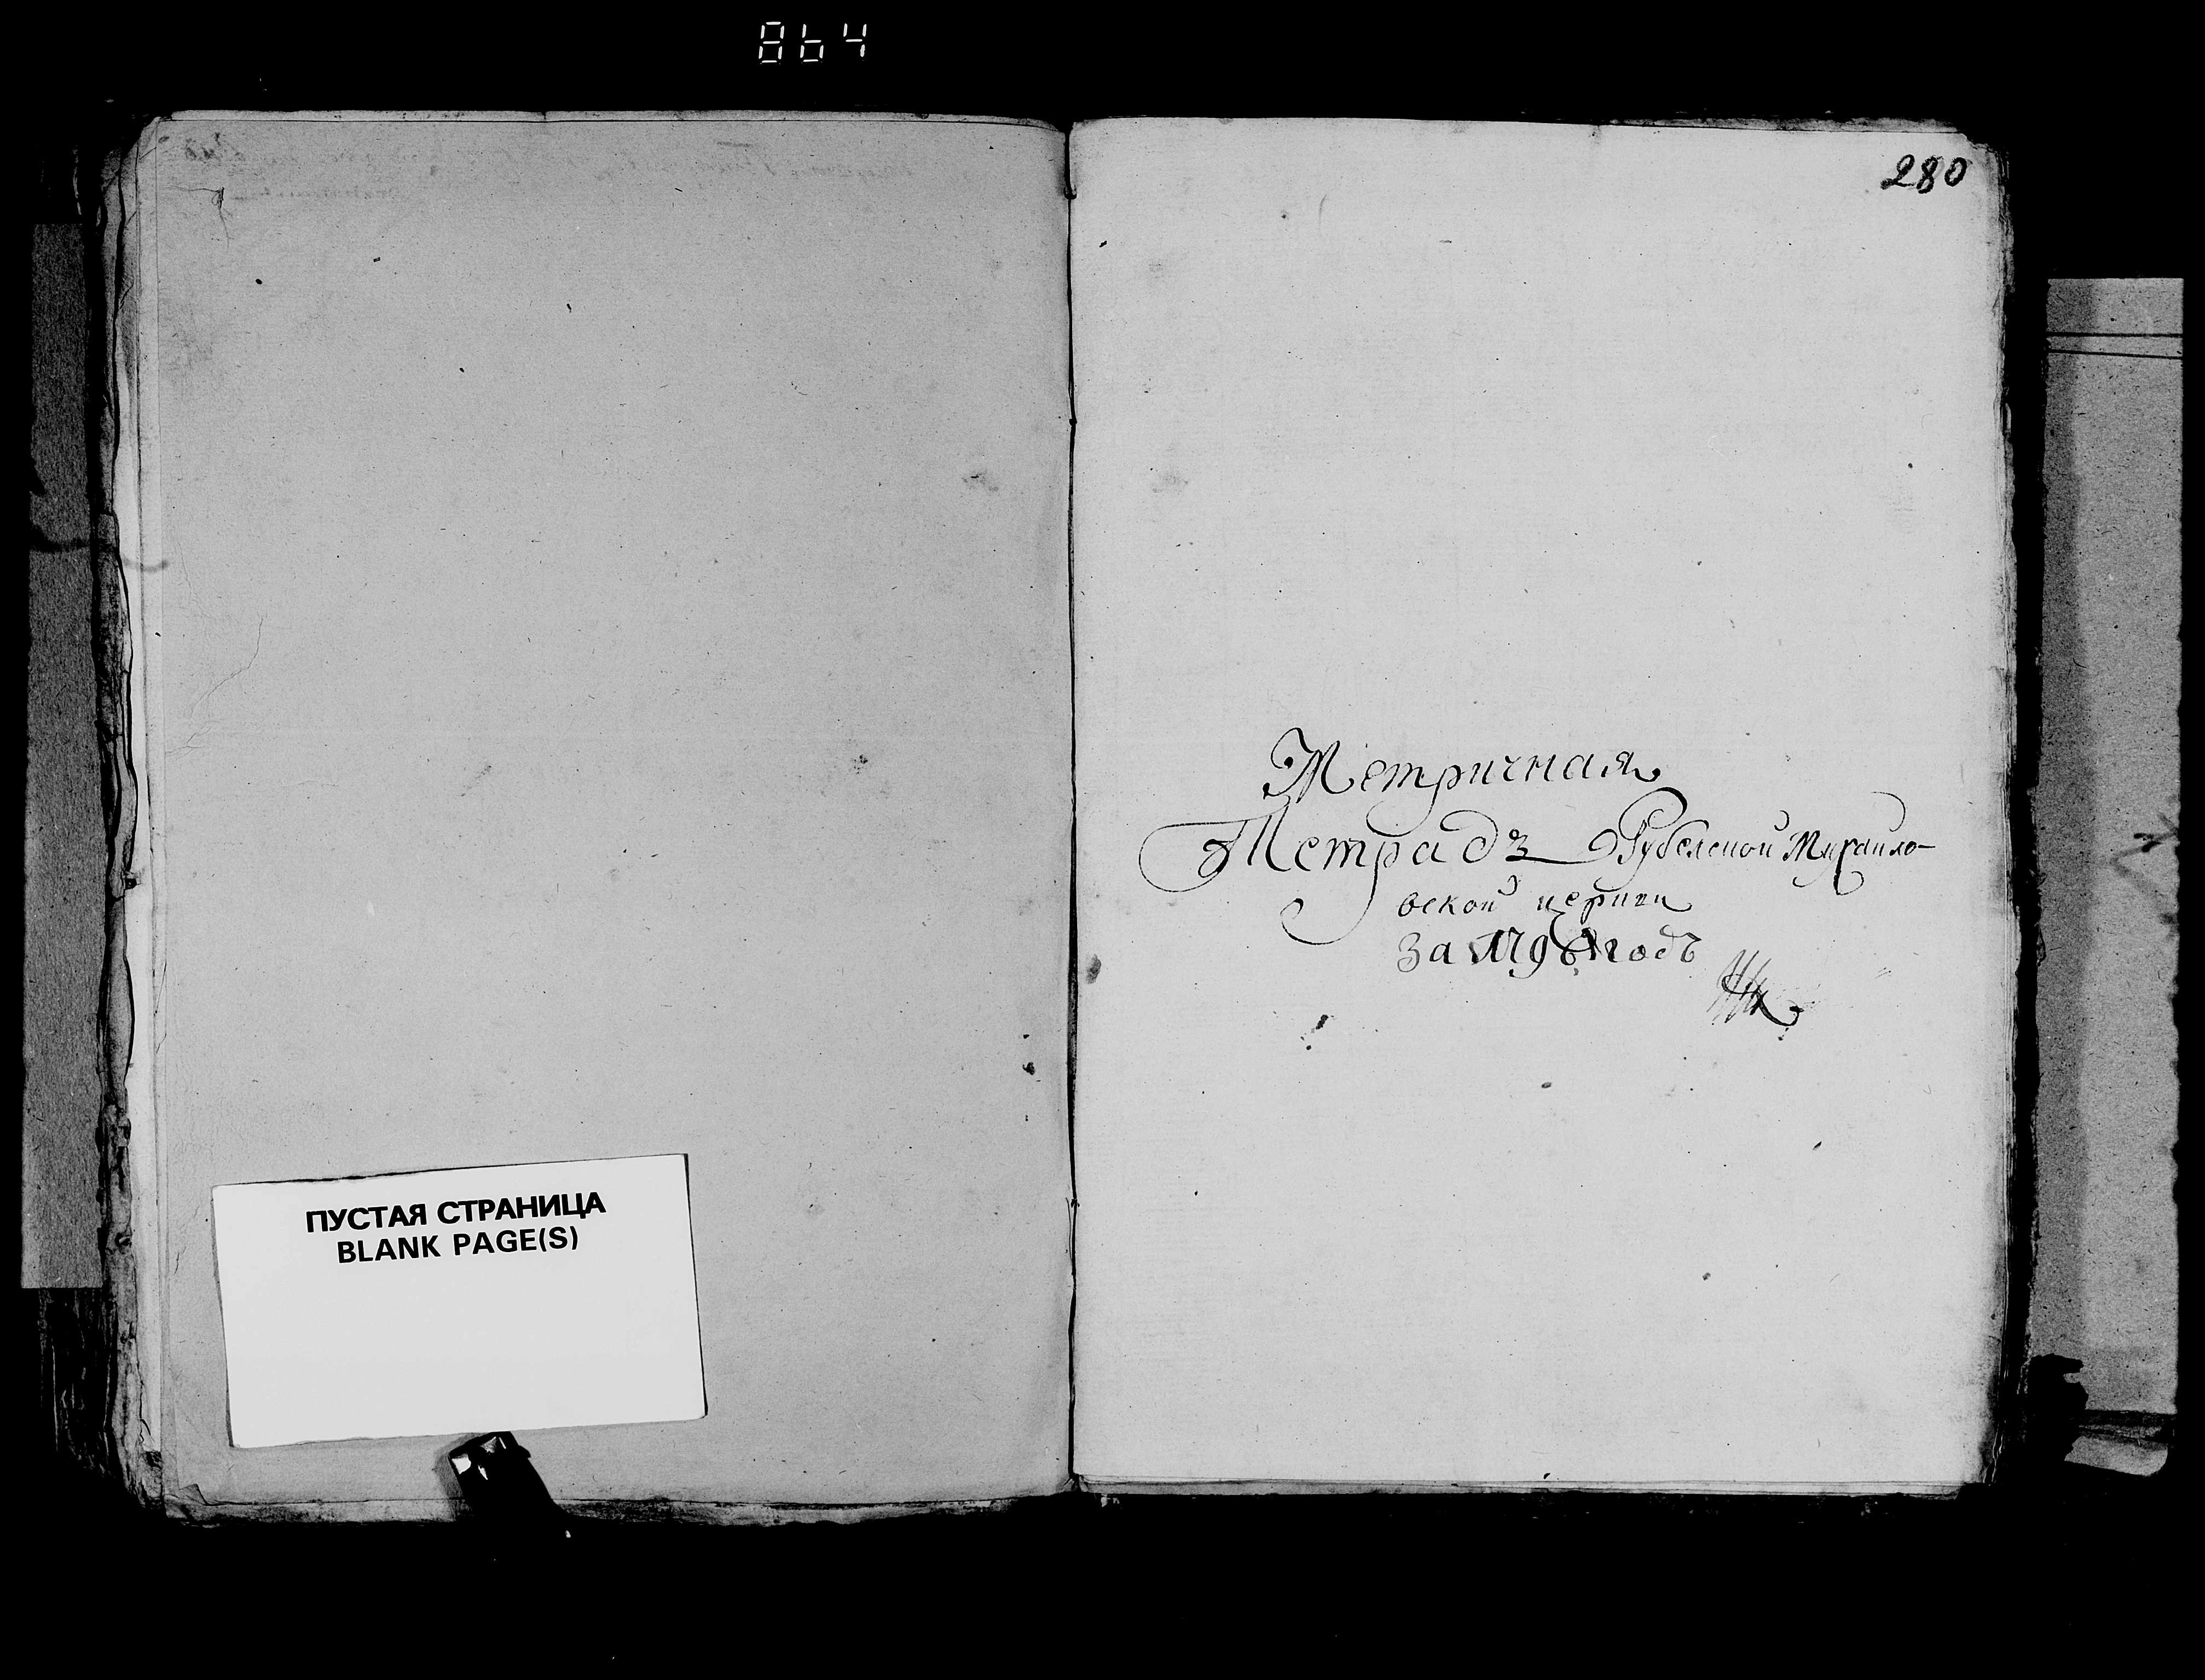 864
280
Метричная
Тетрадъ Рубелской Михайло-
вской церкви
За 1796 годъ
ПУСТАЯ СТРАНИЦА
BLANK PAGE(S)